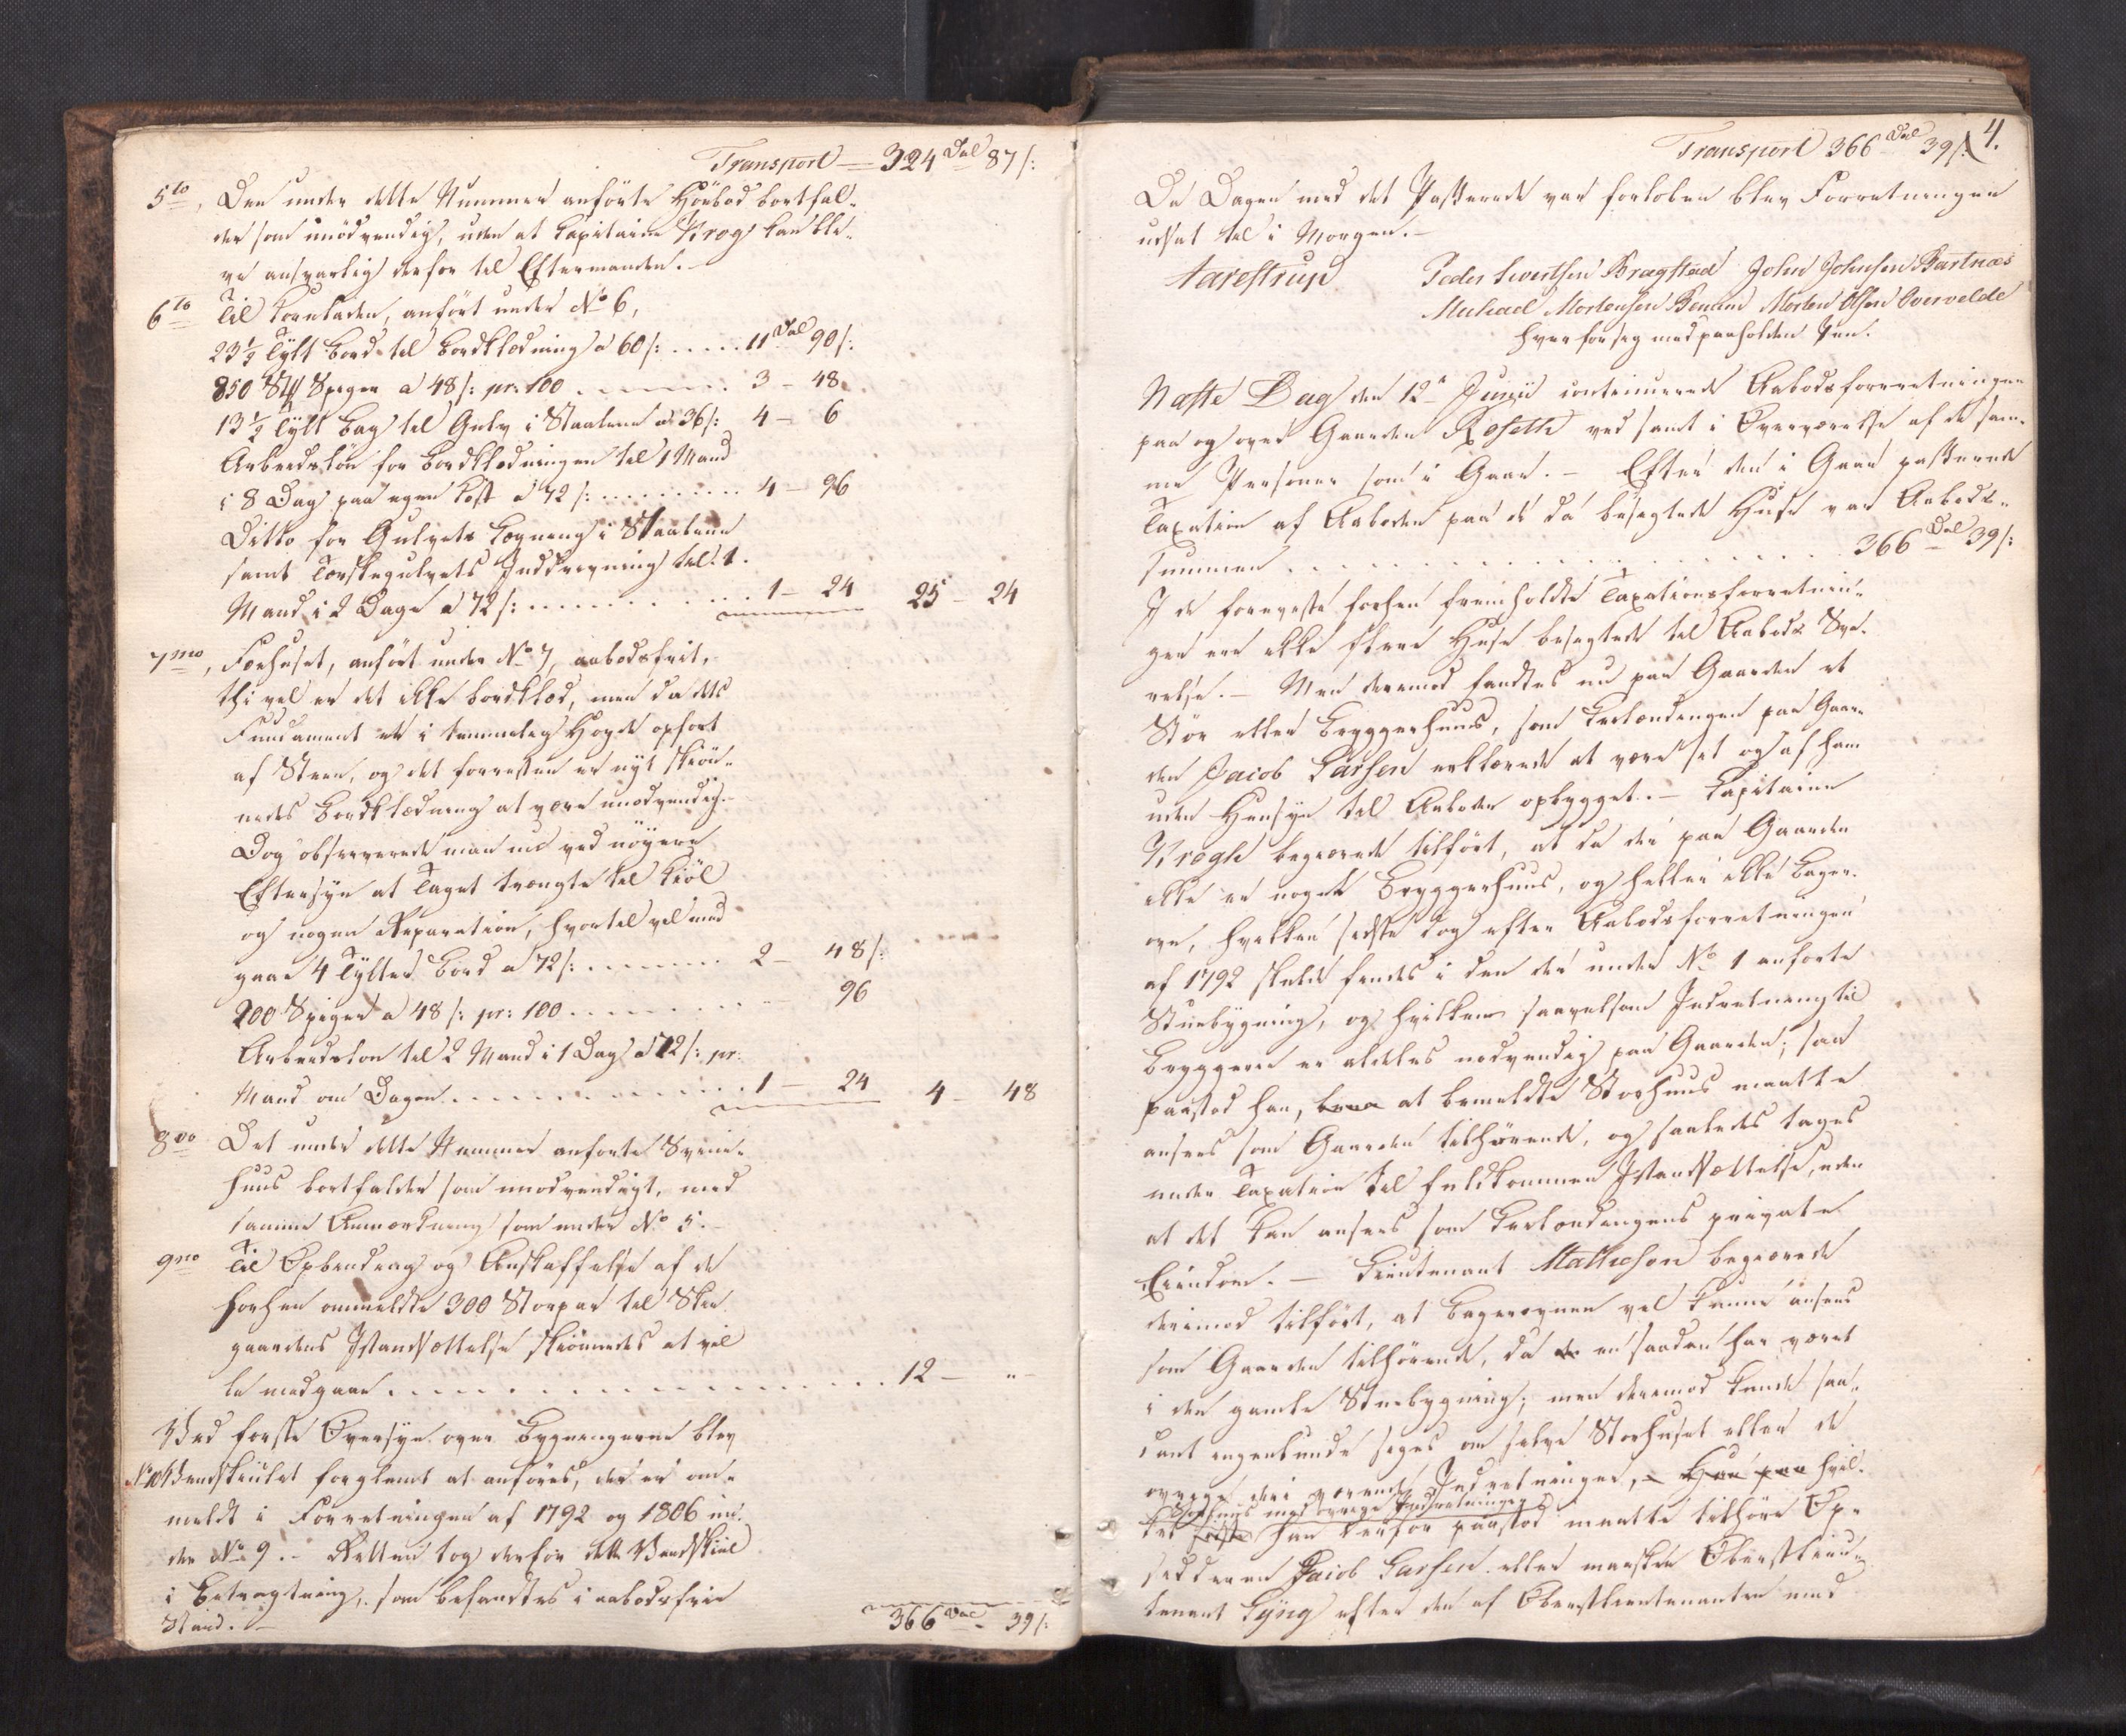 Transport — 324 Dal 87 s:
5to, Den under dette Nummer anförte Höebod bortfal-
der som unödvendig, uden at Capitaine Krog kan bli-
ve ansvarlig derfor til Eftermanden. -
6to Til Kornladen, anfört under No 6,
23½ Tylt Bord til Bordklædning a 60 s: ..... 11 Dal 90 s:
850 Stk Spiger a 48 s: pr: 100 ........ 3 - 48
13½ Tylt Bag til Gulv i Staalene a 36 s: 4 - 6
Arbeidslön for Bordklædningen til 1 Mand
i 8 Dag paa egen Kost a 72 s: ......... 4 - 96
Ditto for Gulvets Lægning i Staalene
samt Torskegulvets Inddrivning til 1.
Mand i 2 Dage a 72 s: ............ 1 - 24 25 - 24
7mo, Fæhuset, anfört under No 7, aabodsfrit,
thi vel er det ikke bordklæd, men da dets
Fundament er i temmelig Höyde opfört
af Steen, og det forresten er nyt skiön-
nedes Bordklædning at være unödvendig. -
Dog observerede man nu ved nöyere
Eftersyn at Taget trængte til Kiöl
og nogen Reparation, hvortil vil med-
gaae 4 Tylter Bord a 72 s: ....... 2 - 48 s:
200 Spiger a 48 s: pr: 100 ........ - 96
Arbeidslön til 2 Mand i 1 Dag a 72 s: pr:
Mand om Dagen ............ 1 - 24 4 - 48
8vo Det under dette Nummer anförte Sviine-
huus bortfalder som unödvendigt, med
samme Anmærkning som under No 5. -
9no Til Opbendrag og Anskaffelse af de
forhen ommeldte 300 Storpar til Skie-
gaardens Istandsættelse skiönnedes at vil-
le medgaae ................. 12 - "
Ved förste Oversyn over Bygningerne blev
No 10 Vandskiulet forglemt at anföres, der er om-
meldt i Forretningen af 1792 og 1806 un-
der No 9. - Retten tog derfor dette Vandskiul
i Betragtning, som befandtes i aabodsfrie
Stand. - 366 Dal 39 s:
Transport 366 Dal 39 s: 4.
Da Dagen med det Passerede var forloben blev Forretningen
udsat til i Morgen. -
Aarestrup Peder Sivertsen Bragstad John Johnsen Bartnæs
Michael Mortensen Benum Morten Olsen Overvolde
hver for sig med paaholden Pen.
Næste Dag den 12te Junii continuerede Aabodsforretningen
paa og over Gaarden Roseth ved samt i Overværelse af de sam-
me Personer som i Gaar. - Efter den i Gaar passerede
Taxation af Aaboden paa de da besigtede Huse var Aabods-
summen .................. 366 Dal 39 s:
I de foreviste forhen fremholdte Taxationsforretnin-
ger ere ikke flere Huse besigtede til Aabods Sva-
relse. - Men derimod fandtes nu paa Gaarden et
Stör eller Bryggerhuus, som Leilændingen paa Gaar-
den Jacob Larsen erklærede at være sit og af ham
uden Hensyn til Aaboden opbygget. - Capitaine
Krogh begierede tilfört, at da der paa Gaarden
ikke er noget Bryggerhuus, og heller ikke Bager-
ovn, hvilken sidste dog efter Aabodsforretningen
af 1792 skulde findes i den der under No 1 anförte
Stuebygning, og hvilken saavelsom Indretning til
Bryggerie er aldeles nödvendig paa Gaarden; saa
paastod han, at bemeldte Storhuus maatte
ansees som Gaarden tilhörende, og saaledes tages
under Taxation til fuldkommen Istandsættelse, uden
at det kan ansees som Leilændingens private
Eiendom. - Lieutenant Matheson begierede
derimod tilfört, at Bagerovnen vel kunne ansees
som Gaarden tilhörende, da en saadan har været
i den gamle Stuebygning; men derimod kunde saa-
dant ingenlunde siges om selve Storhuset eller de
övrige deri værende Indretninger, hvil-
Storhuus med övrige Indretninger
ket han derfor paastod maatte tilhöre Op-
sidderen Jacob Larsen eller maaskee Oberstlieu-
tenant Lyng efter den af Oberstlieutenanten med